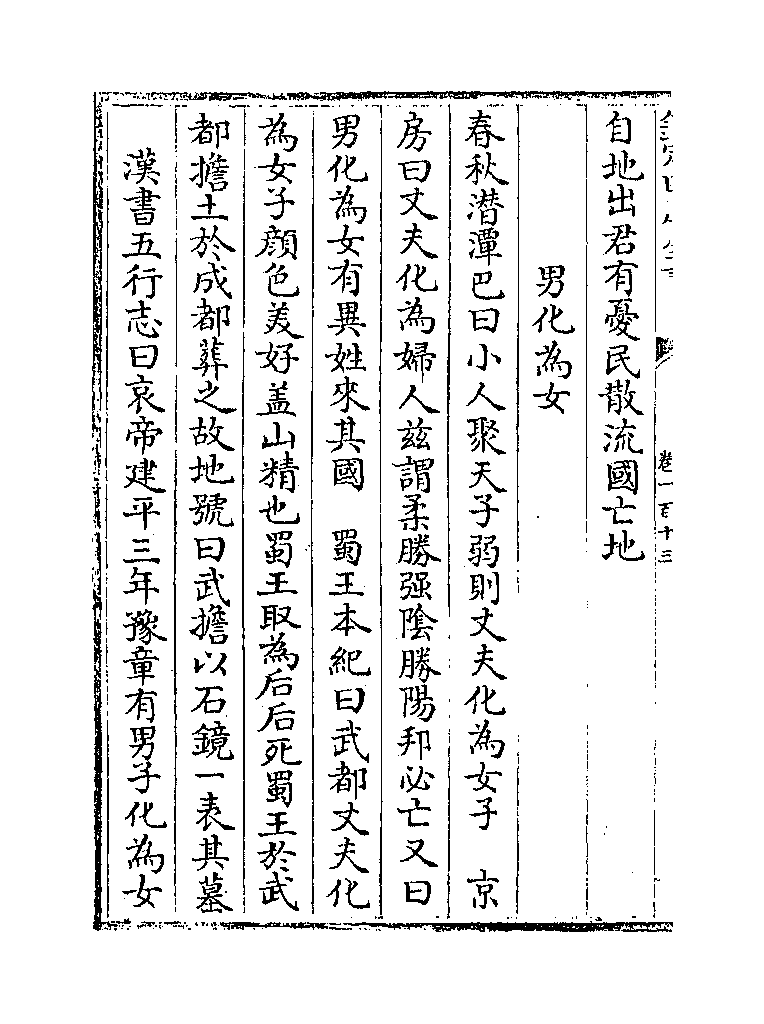 卷一百十三
自地出君有憂民散流國亡地
男化為女
春秋潛潭巴曰小人聚天子弱則丈夫化為女子　京
房曰丈夫化為婦人兹謂柔勝强陰勝陽邦必亡又曰
男化為女有異姓來其國　蜀王本紀曰武都丈夫化
為女子顔色美好盖山精也蜀王取為后后死蜀王於武
都擔土於成都葬之故地號曰武擔以石鏡一表其墓
漢書五行志曰哀帝建平三年豫章有男子化為女